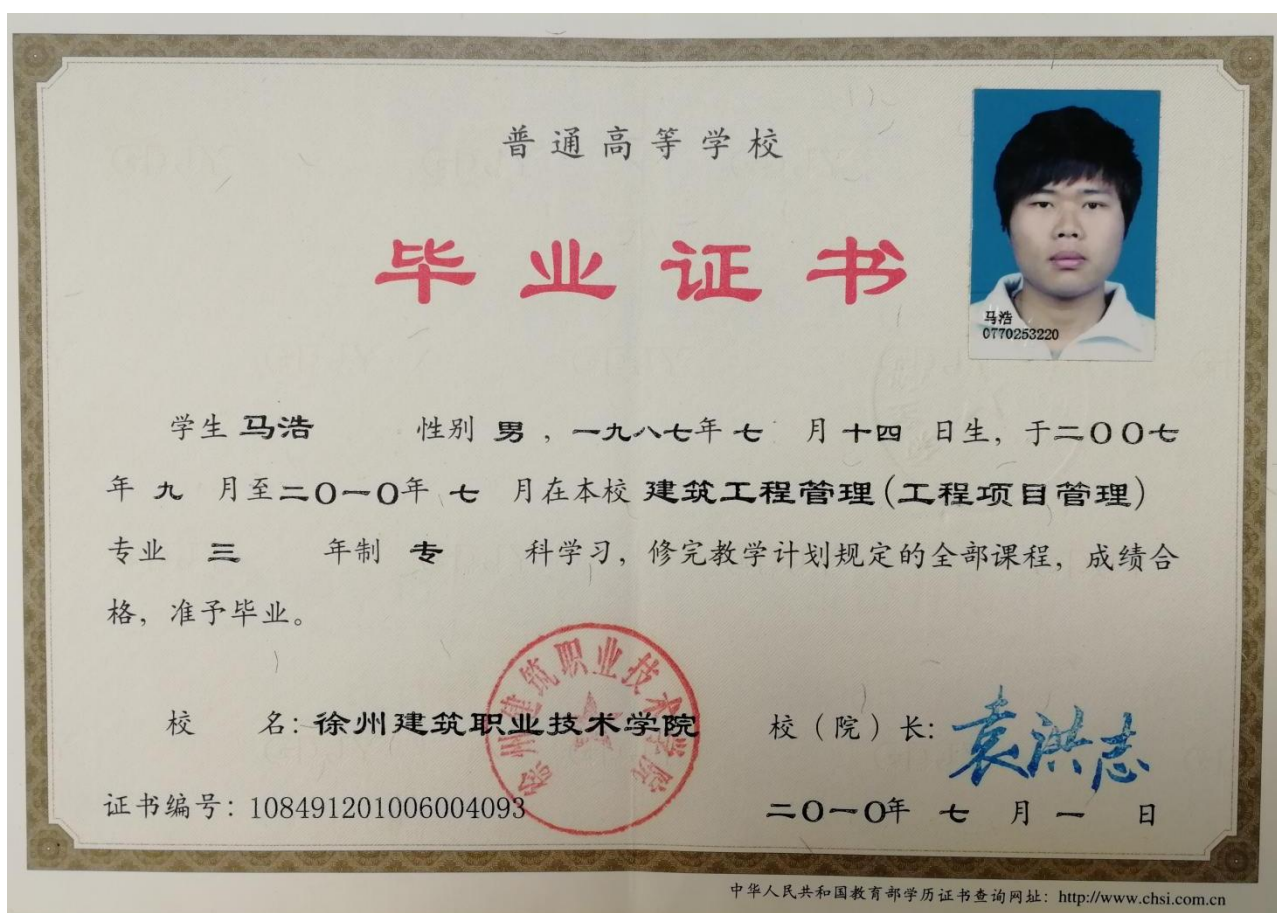 普通高等学校
毕业证书
马浩
0770253220
学生 马浩 性别 男，一九八七年 七 月 十四 日生，于二〇〇七
年 九 月至二〇一〇年 七 月在本校 建筑工程管理(工程项目管理)
专业 三 年制 专 科学习，修完教学计划规定的全部课程，成绩合
格，准予毕业。
徐州建筑职业技术学院
校 名：徐州建筑职业技术学院 校（院）长：袁洪志
证书编号：108491201006004093 二〇一〇年 七 月 一 日
中华人民共和国教育部学历证书查询网址：http://www.chsi.com.cn